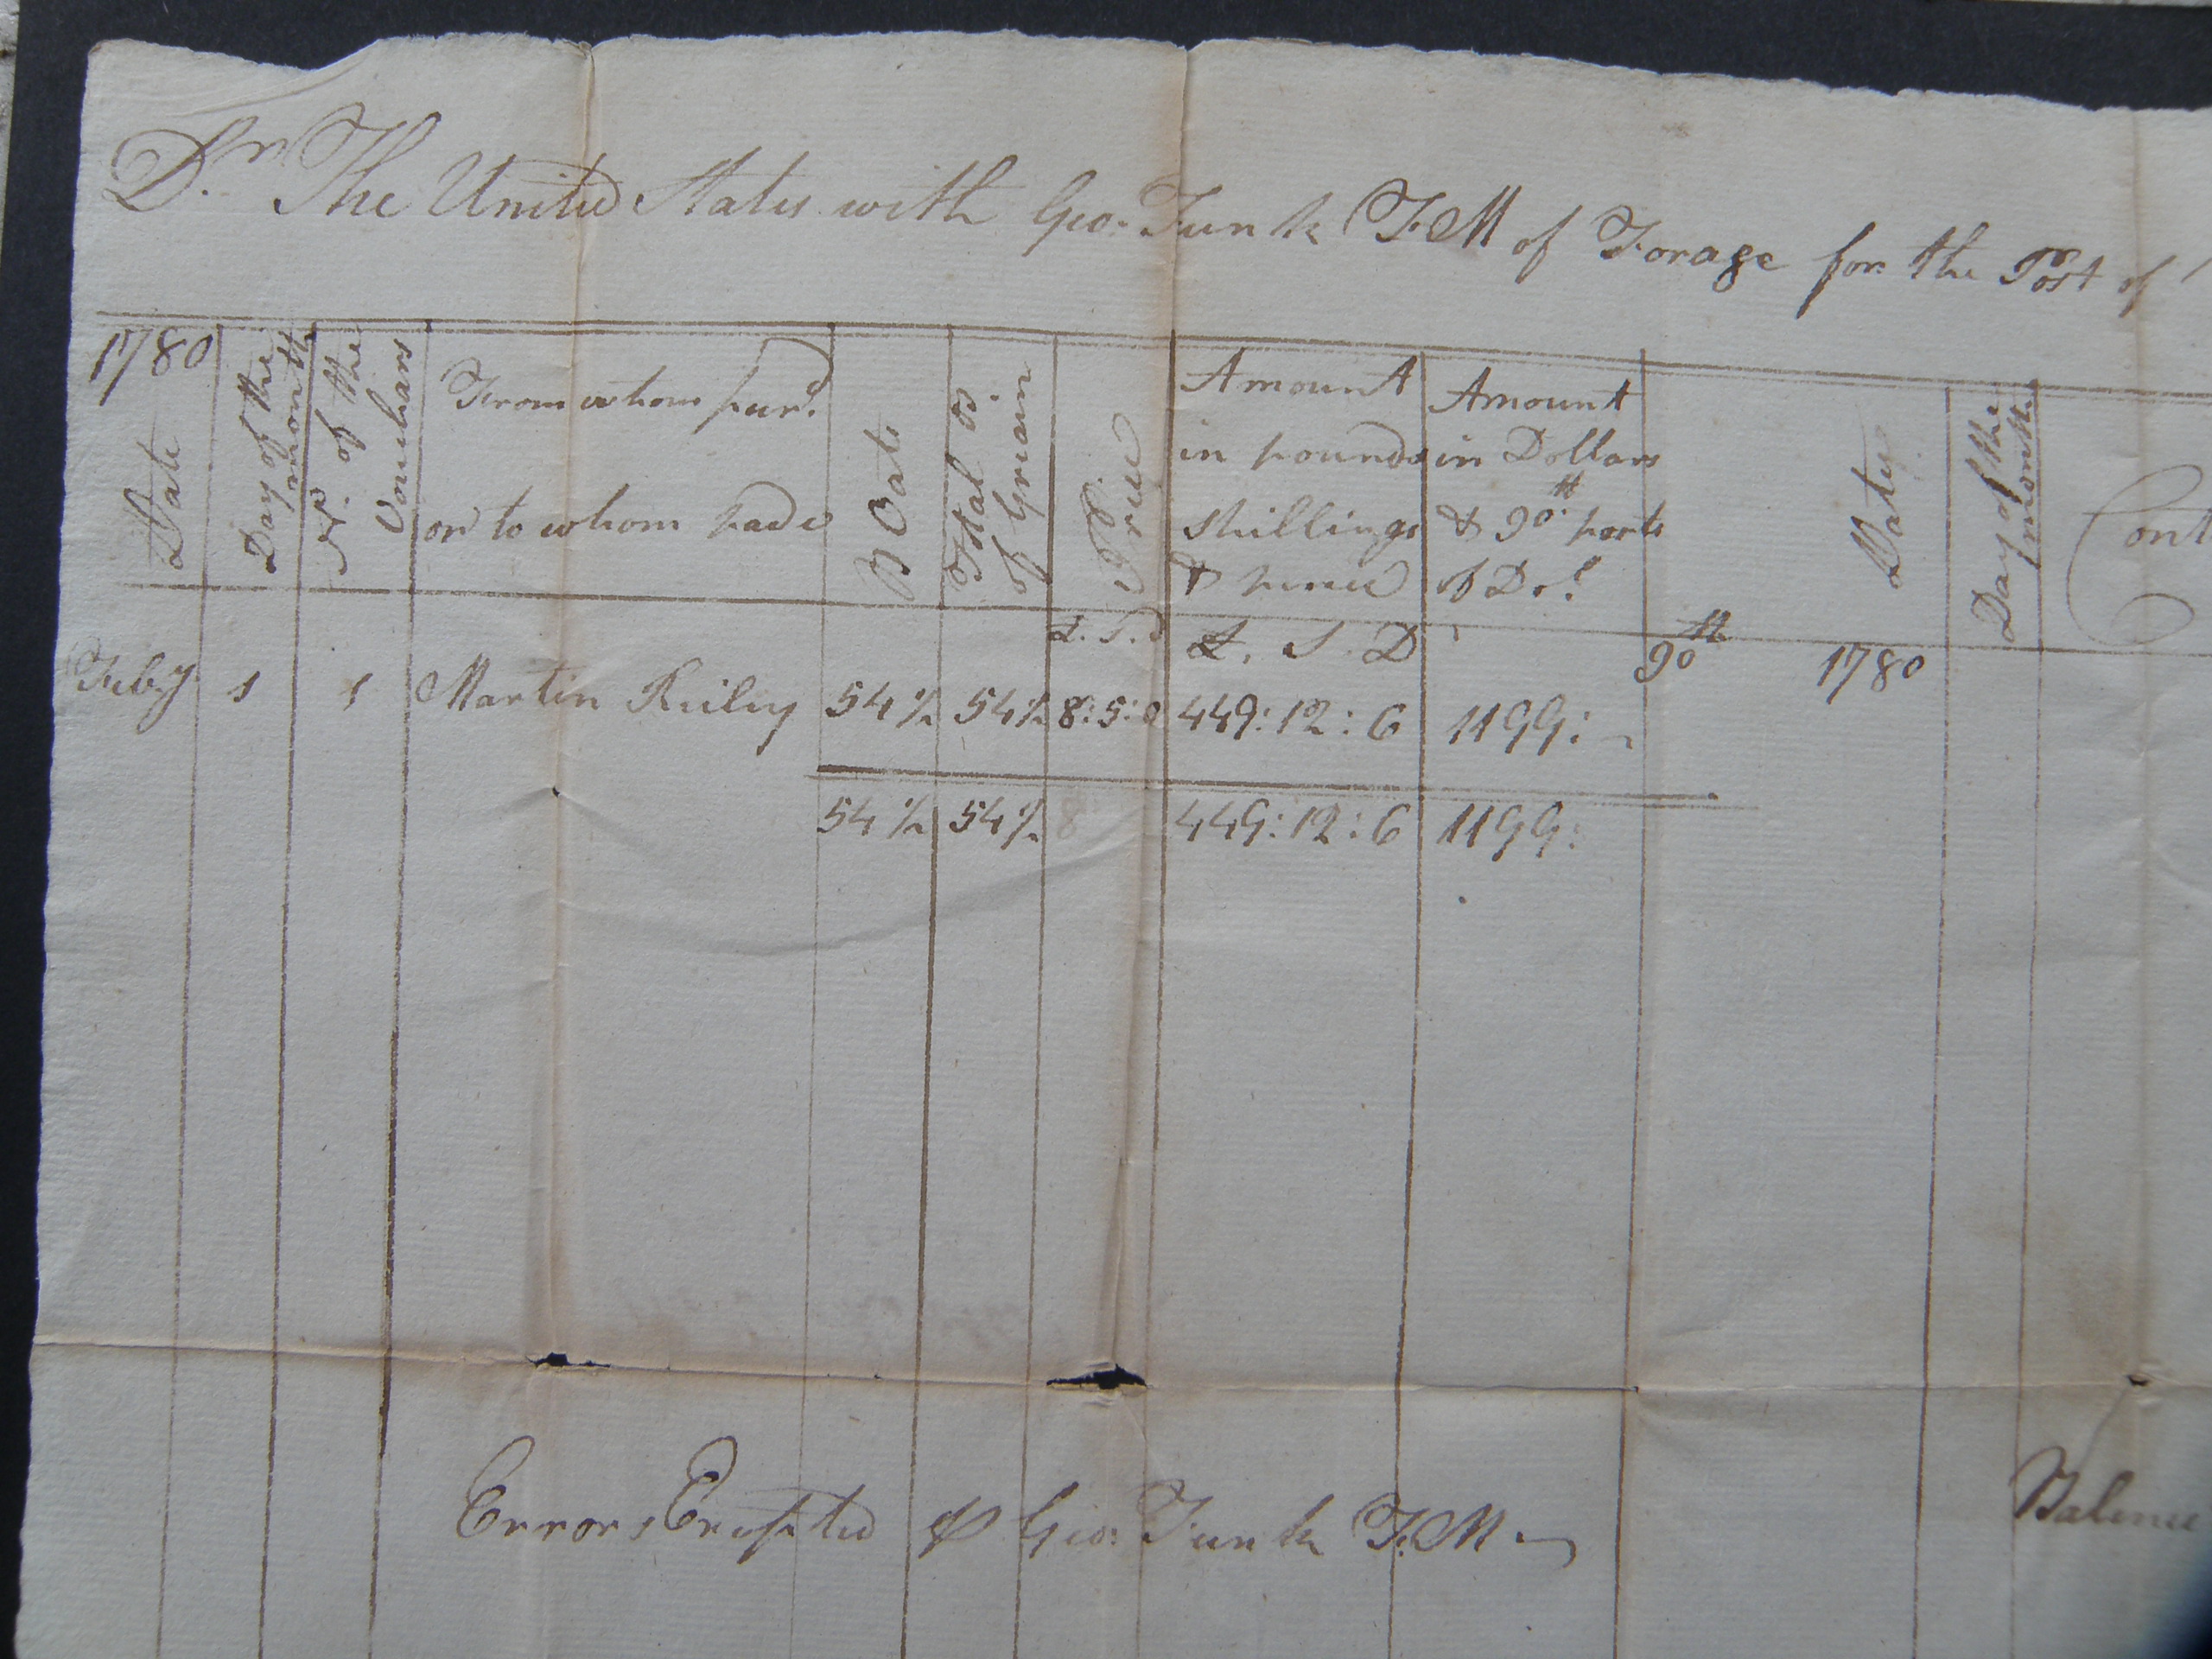 Dr. The United States with Geo. Funk F.M of Forage for the Post of
1780
Date
Day of the month
No. of the Vouchars
From whom purd.
or to whom paid
B Oats
Total B. of Grain
Price
Amount
in pounds
shillings
& pence
Amount
in Dollars
& 90th parts
of Dol
Date
Day of the month
Cont
L. S. D
L. S. D
90th
1780
Feby 1 1 Martin Reiley 54½ 54½ 8:5:0 449:12:6 1199:
54½ 54½ 449:12:6 1199:
Errors Excepted ⅌ Geo: Funk F.M
Balance